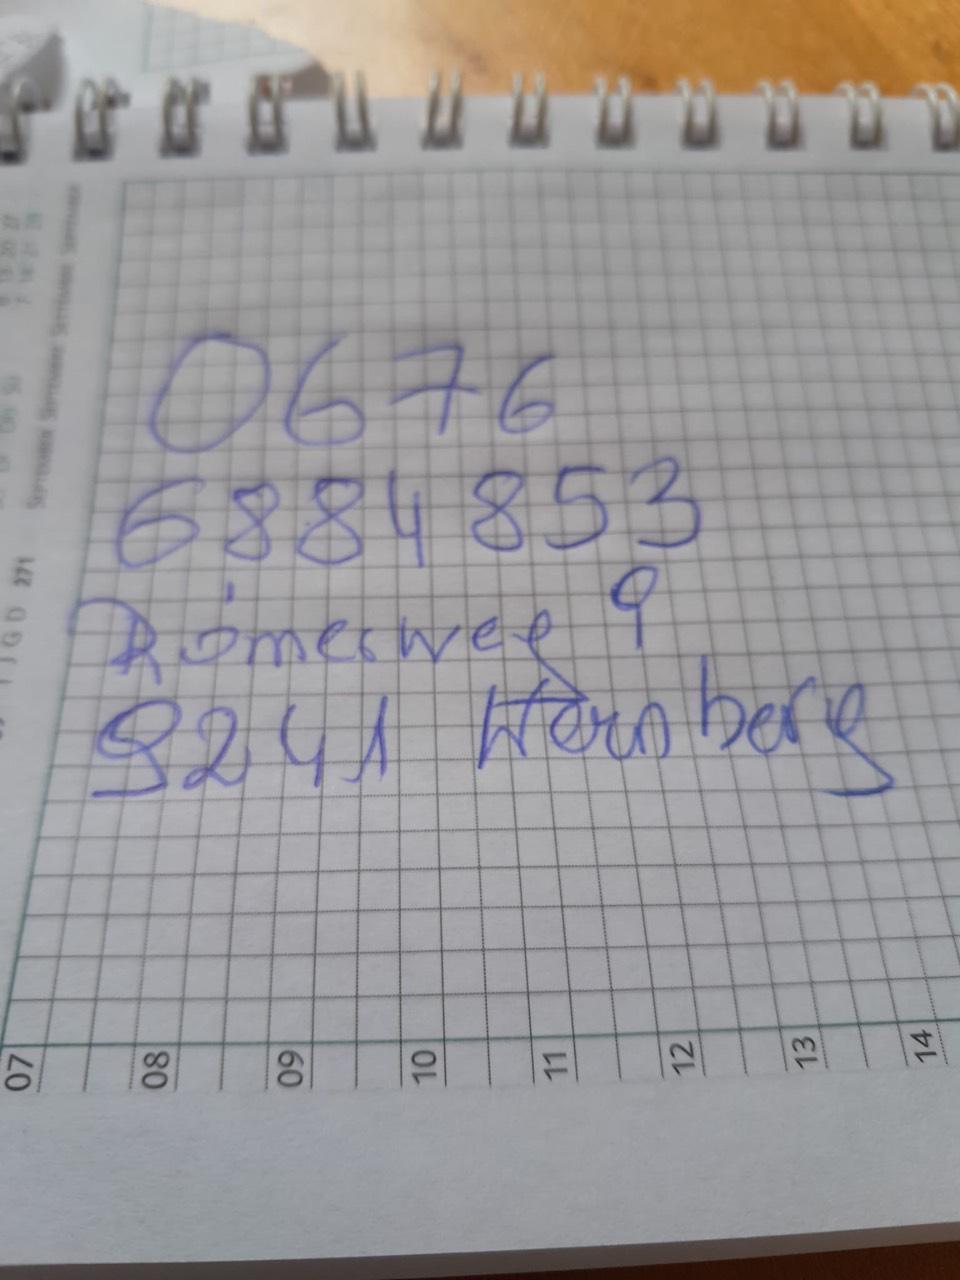 0676
6884853
Römerweg 9
9241 Wernberg
07 08 09 10 11 12 13 14
271